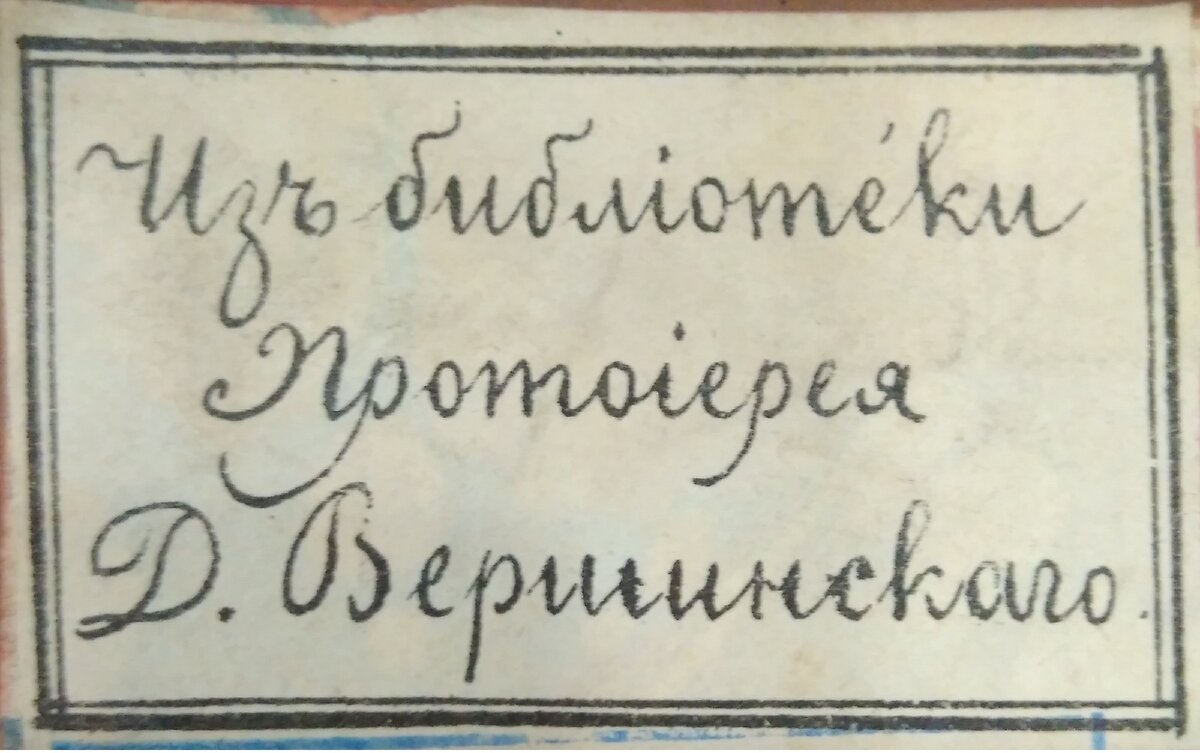 Изъ библіоте́ки
Протоіерея
Д. Вершинскаго.